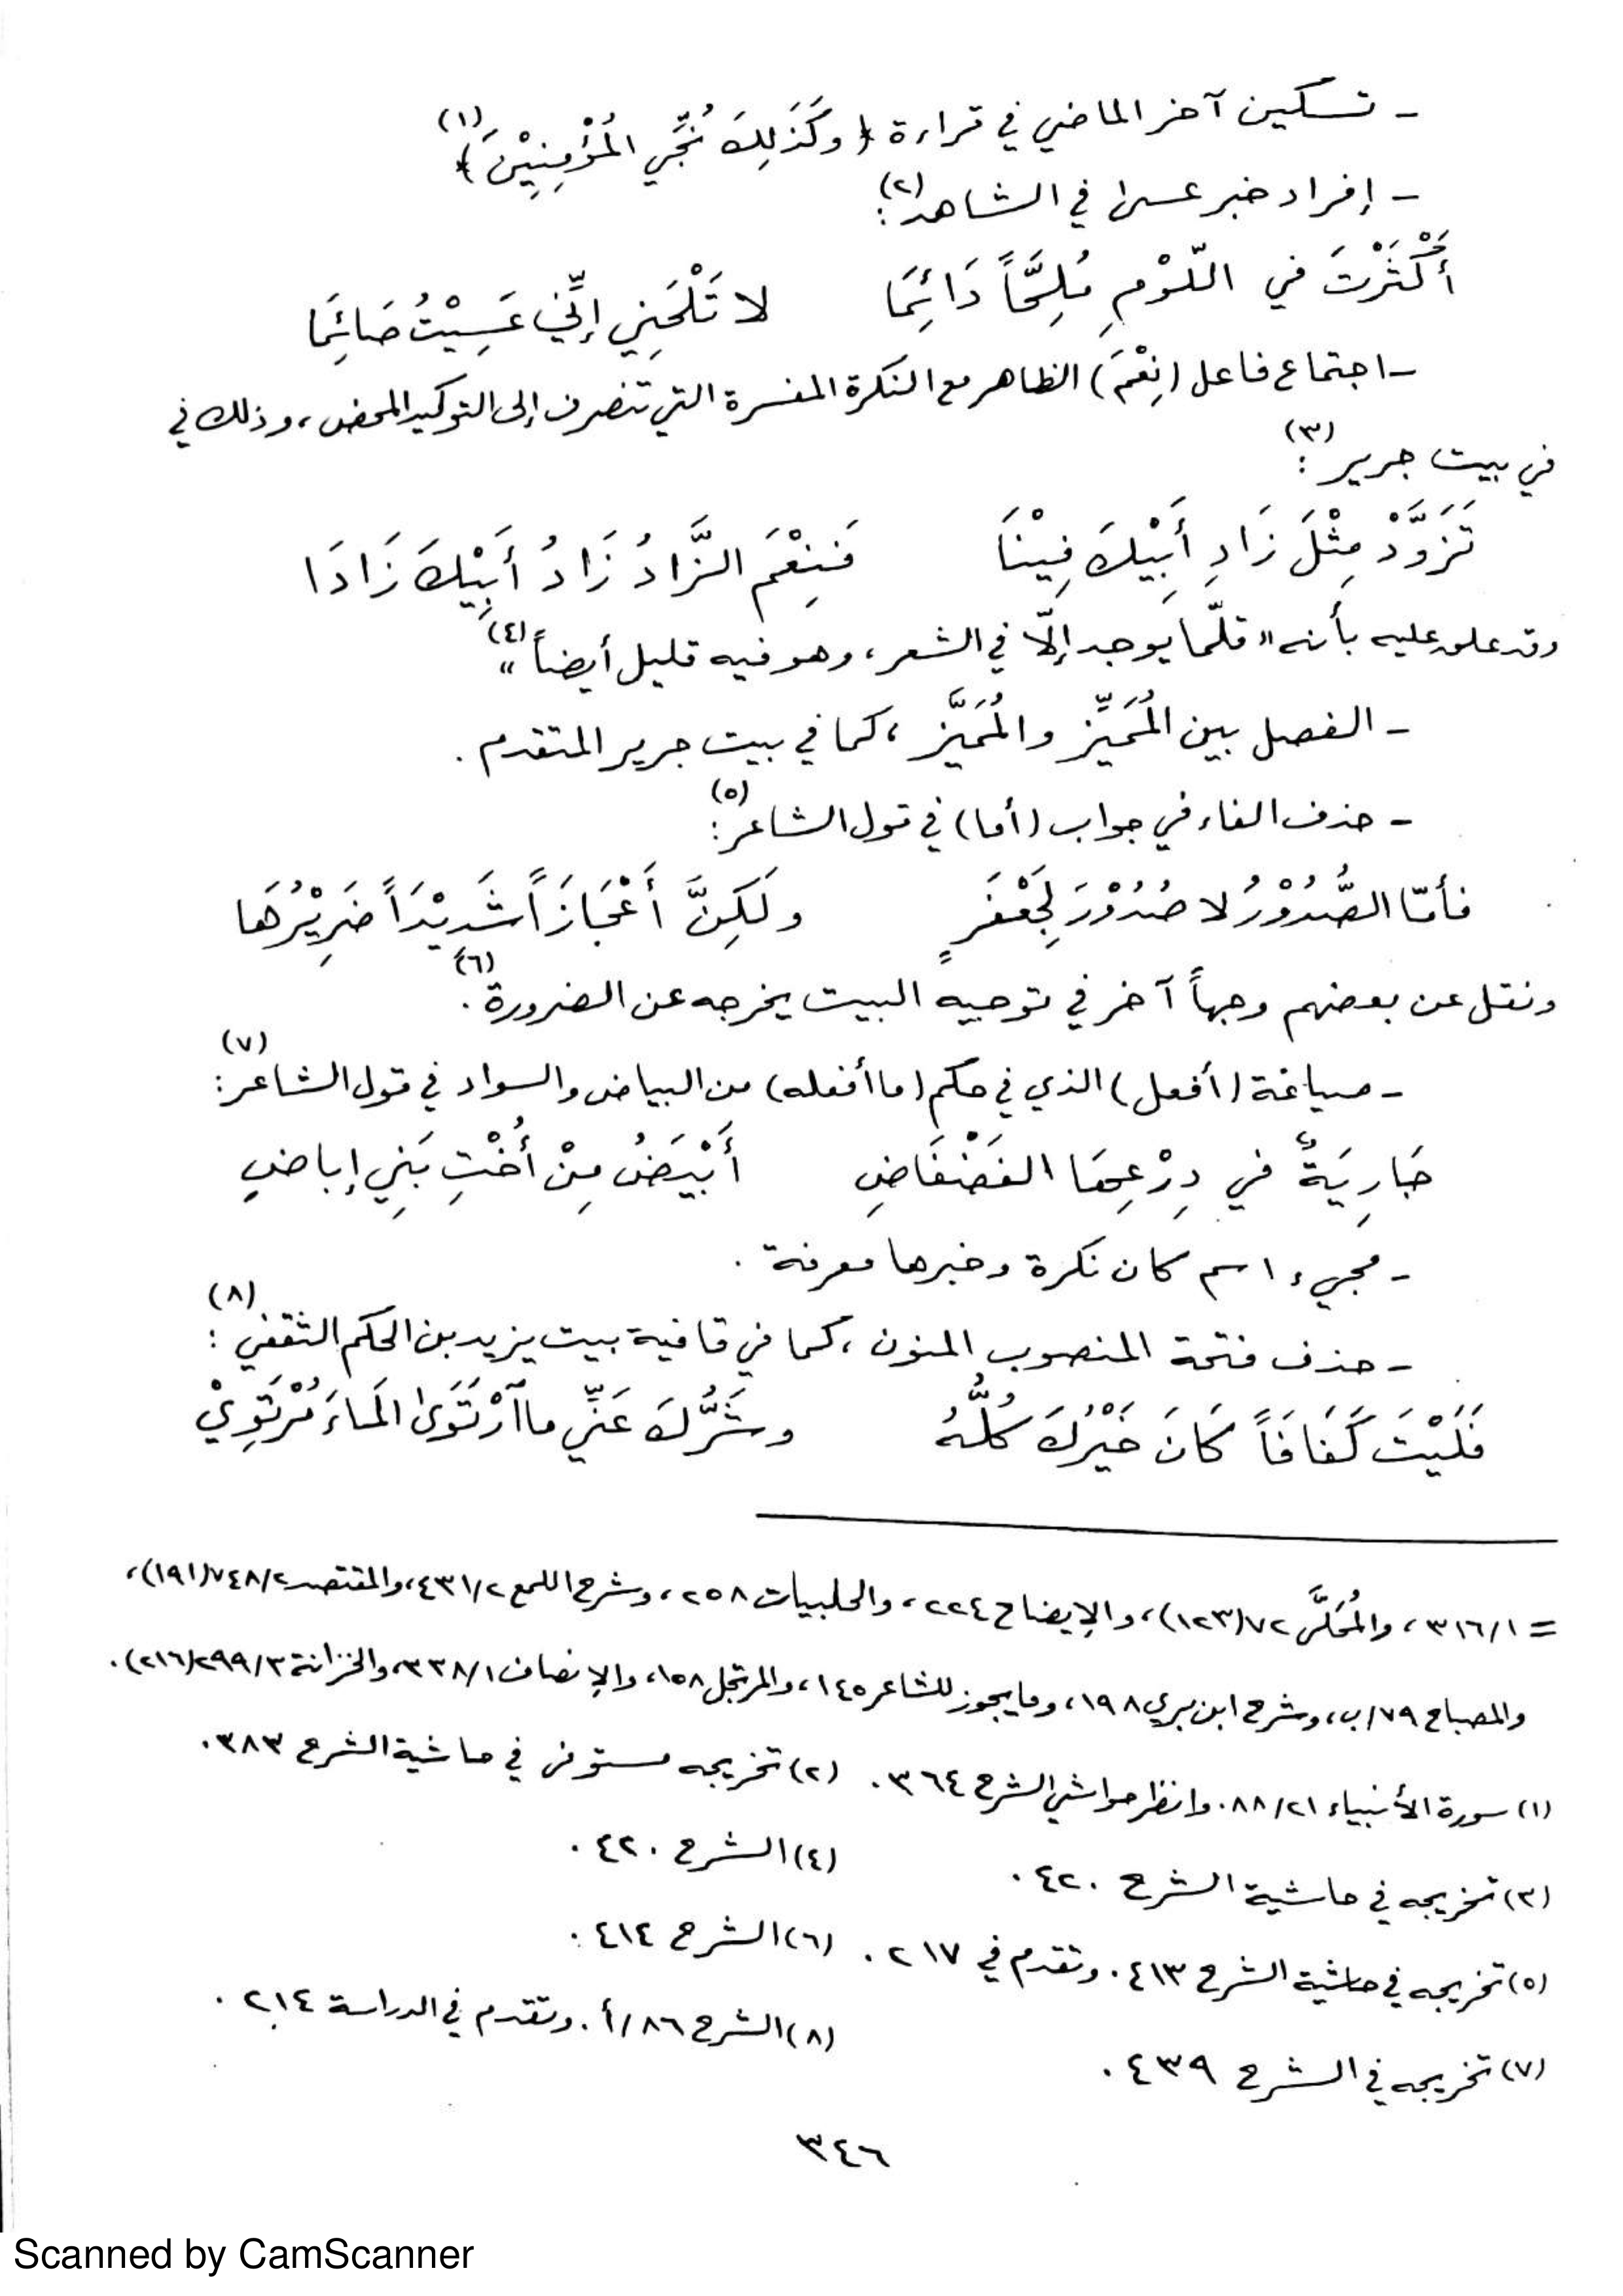 - تسكين آخر الماضي في قراءة ﴿ وَكَذَلِكَ نُجِّي المُؤْمِنِيْنَ ﴾(١)
- إفراد خبر عسى في الشاهد(٢):
أَكْثَرْتَ في اللَّوْمِ مُلِحَّاً دَائِمَا لا تَلْحَنِي إِنِّي عَسِيْتُ صَائِمَا
- اجتماع فاعل (نِعْمَ) الظاهر مع النكرة المفسرة التي تنصرف إلى التوكيد المحض، وذلك في
في بيت جرير(٣):
تَزَوَّدْ مِثْلَ زَادِ أَبِيْكَ فِيْنَا فَنِعْمَ الزَّادُ زَادُ أَبِيْكَ زَادَا
وقد علق عليه بأنه « قلّما يوجد إلّا في الشعر، وهو فيه قليل أيضاً »(٤)
- الفصل بين المُمَيِّز والمُمَيَّز، كما في بيت جرير المتقدم.
- حذف الفاء في جواب (أما) في قول الشاعر(٥):
فأمّا الصُّدُوْرُ لا صُدُوْرَ لِجَعْفَرٍ ولَكِنَّ أَعْجَازَاً شَدِيْدَاً ضَرِيْرُهَا
ونقل عن بعضهم وجهاً آخر في توجيه البيت يخرجه عن الضرورة(٦).
- صياغة (أفعل) الذي في حكم (ما أفعله) من البياض والسواد في قول الشاعر(٧):
جَارِيَةٌ في دِرْعِهَا الفَضْفَاضِ أَبْيَضُ مِنْ أُخْتِ بَنِي إباضِ
- مجيء اسم كان نكرة وخبرها معرفة.
- حذف فتحة المنصوب المنون، كما في قافية بيت يزيد بن الحكم الثقفي(٨):
فَلَيْتَ كَفَافَاً كَانَ خَيْرُكَ كُلُّهُ وشَرُّكَ عَنِّي ما آرْتَوَى المَاءَ مُرْتَوِيْ
= ٣١٦/١، والمُحَلَّى ٧٢(١٢٣)، والإيضاح ٢٢٤، والحلبيات ٢٥٨، وشرح اللمع ٤٣١/٢، والمقتصد ٧٤٨/٢(١٩١)،
والمصباح ٧٩/ب، وشرح ابن بري ١٩٨، وما يجوز للشاعر ١٤٥، والمرتجل ١٥٨، والإنصاف ٣٣٨/١، والخزانة ٢٩٩/٣(٢١٦).
(١) سورة الأنبياء ٨٨/٢١. وانظر حواشي الشرح ٣٦٤. (٢) تخريجه مستوفى في حاشية الشرح ٣٨٣.
(٣) تخريجه في حاشية الشرح ٤٢٠. (٤) الشرح ٤٢٠.
(٥) تخريجه في حاشية الشرح ٤١٣. وتقدم في ٢١٧. (٦) الشرح ٤١٤.
(٧) تخريجه في الشرح ٤٣٩. (٨) الشرح ٨٦/أ. وتقدم في الدراسة ٢١٤.
٣٤٦
Scanned by CamScanner